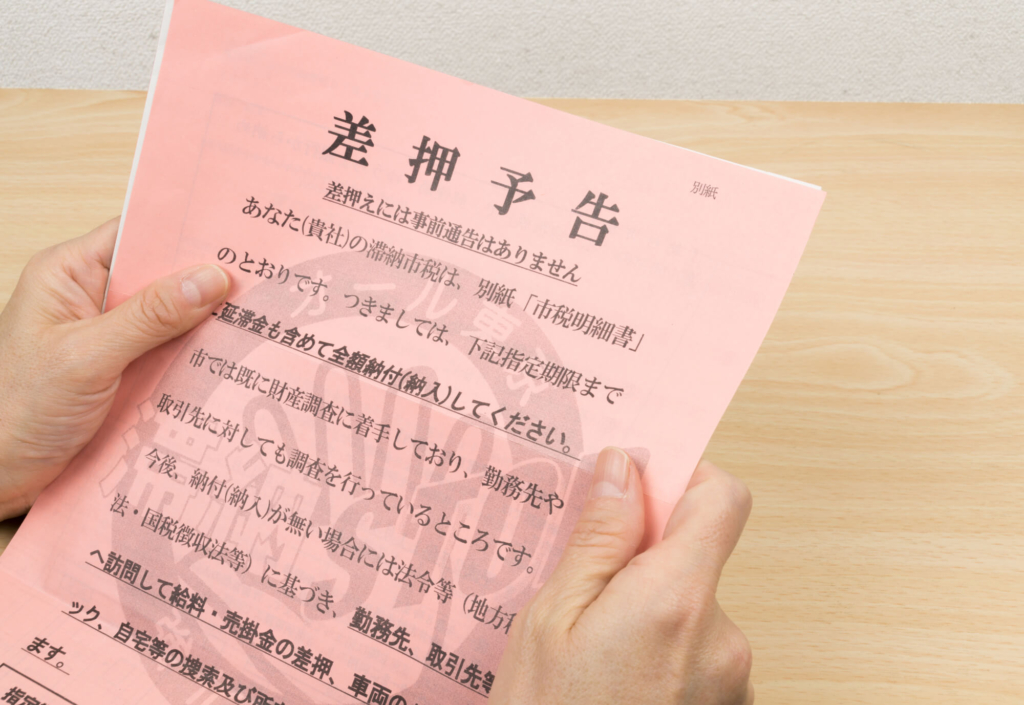 別紙
差押予告
差押えには事前通告はありません
あなた(貴社)の滞納市税は、別紙「市税明細書」
のとおりです。つきましては、下記指定期限まで
延滞金も含めて全額納付(納入)してください。
市では既に財産調査に着手しており、勤務先や
取引先に対しても調査を行っているところです。
今後、納付(納入)が無い場合には法令等（地方税
法・国税徴収法等）に基づき、勤務先、取引先等
へ訪問して給料・売掛金の差押、車両の
ック、自宅等の捜索及び所
ます。
指定
オール東
STOP
滞納